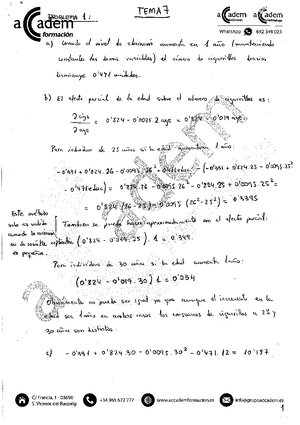 academ
formación
TEMA 7
academ academ
WhatsApp 692 349 023
PROBLEMA 1:
a) Cuando el nivel de educación aumenta en 1 año (manteniendo
constantes las demás variables) el número de cigarrillos diarios
disminuye 0'471 unidades.
b) El efecto parcial de la edad sobre el número de cigarrillos es:
∂cigs / ∂age = 0'824 - 0'0095.2 age = 0'824 - 0'019 age
Para individuos de 25 años si la edad aumentara 1 año:
-0'331 + 0'824.26 - 0'0095.26² - 0'471 educ - (-0'331 + 0'824.25 - 0'0095.25²
- 0'471 educ) = 0'824.26 - 0'0095.26² - 0'824.25 + 0'0095.25² =
= 0'824 (26-25) - 0'0095 (26²-25²) = 0'3395
Este método
solo es válido
cuando la variación
en la variable explicativa
es pequeña.
También se puede hacer aproximadamente con el efecto parcial:
(0'824 - 0'019.25).1 = 0'349.
Para individuos de 30 años si la edad aumenta 1 año:
(0'824 - 0'019.30).1 = 0'254
Obviamente no puede ser igual ya que aunque el incremento en la
edad sea 1 año en ambos casos los consumos de cigarrillos a 25 y
30 años son distintos.
c) -0'331 + 0'824.30 - 0'0095.30² - 0'471.12 = 10'187
C/ Francia, 1 - 03690
S. Vicente del Raspeig
+34 965 672 777
www.accademformacion.es
info@grupoaccadem.es
1